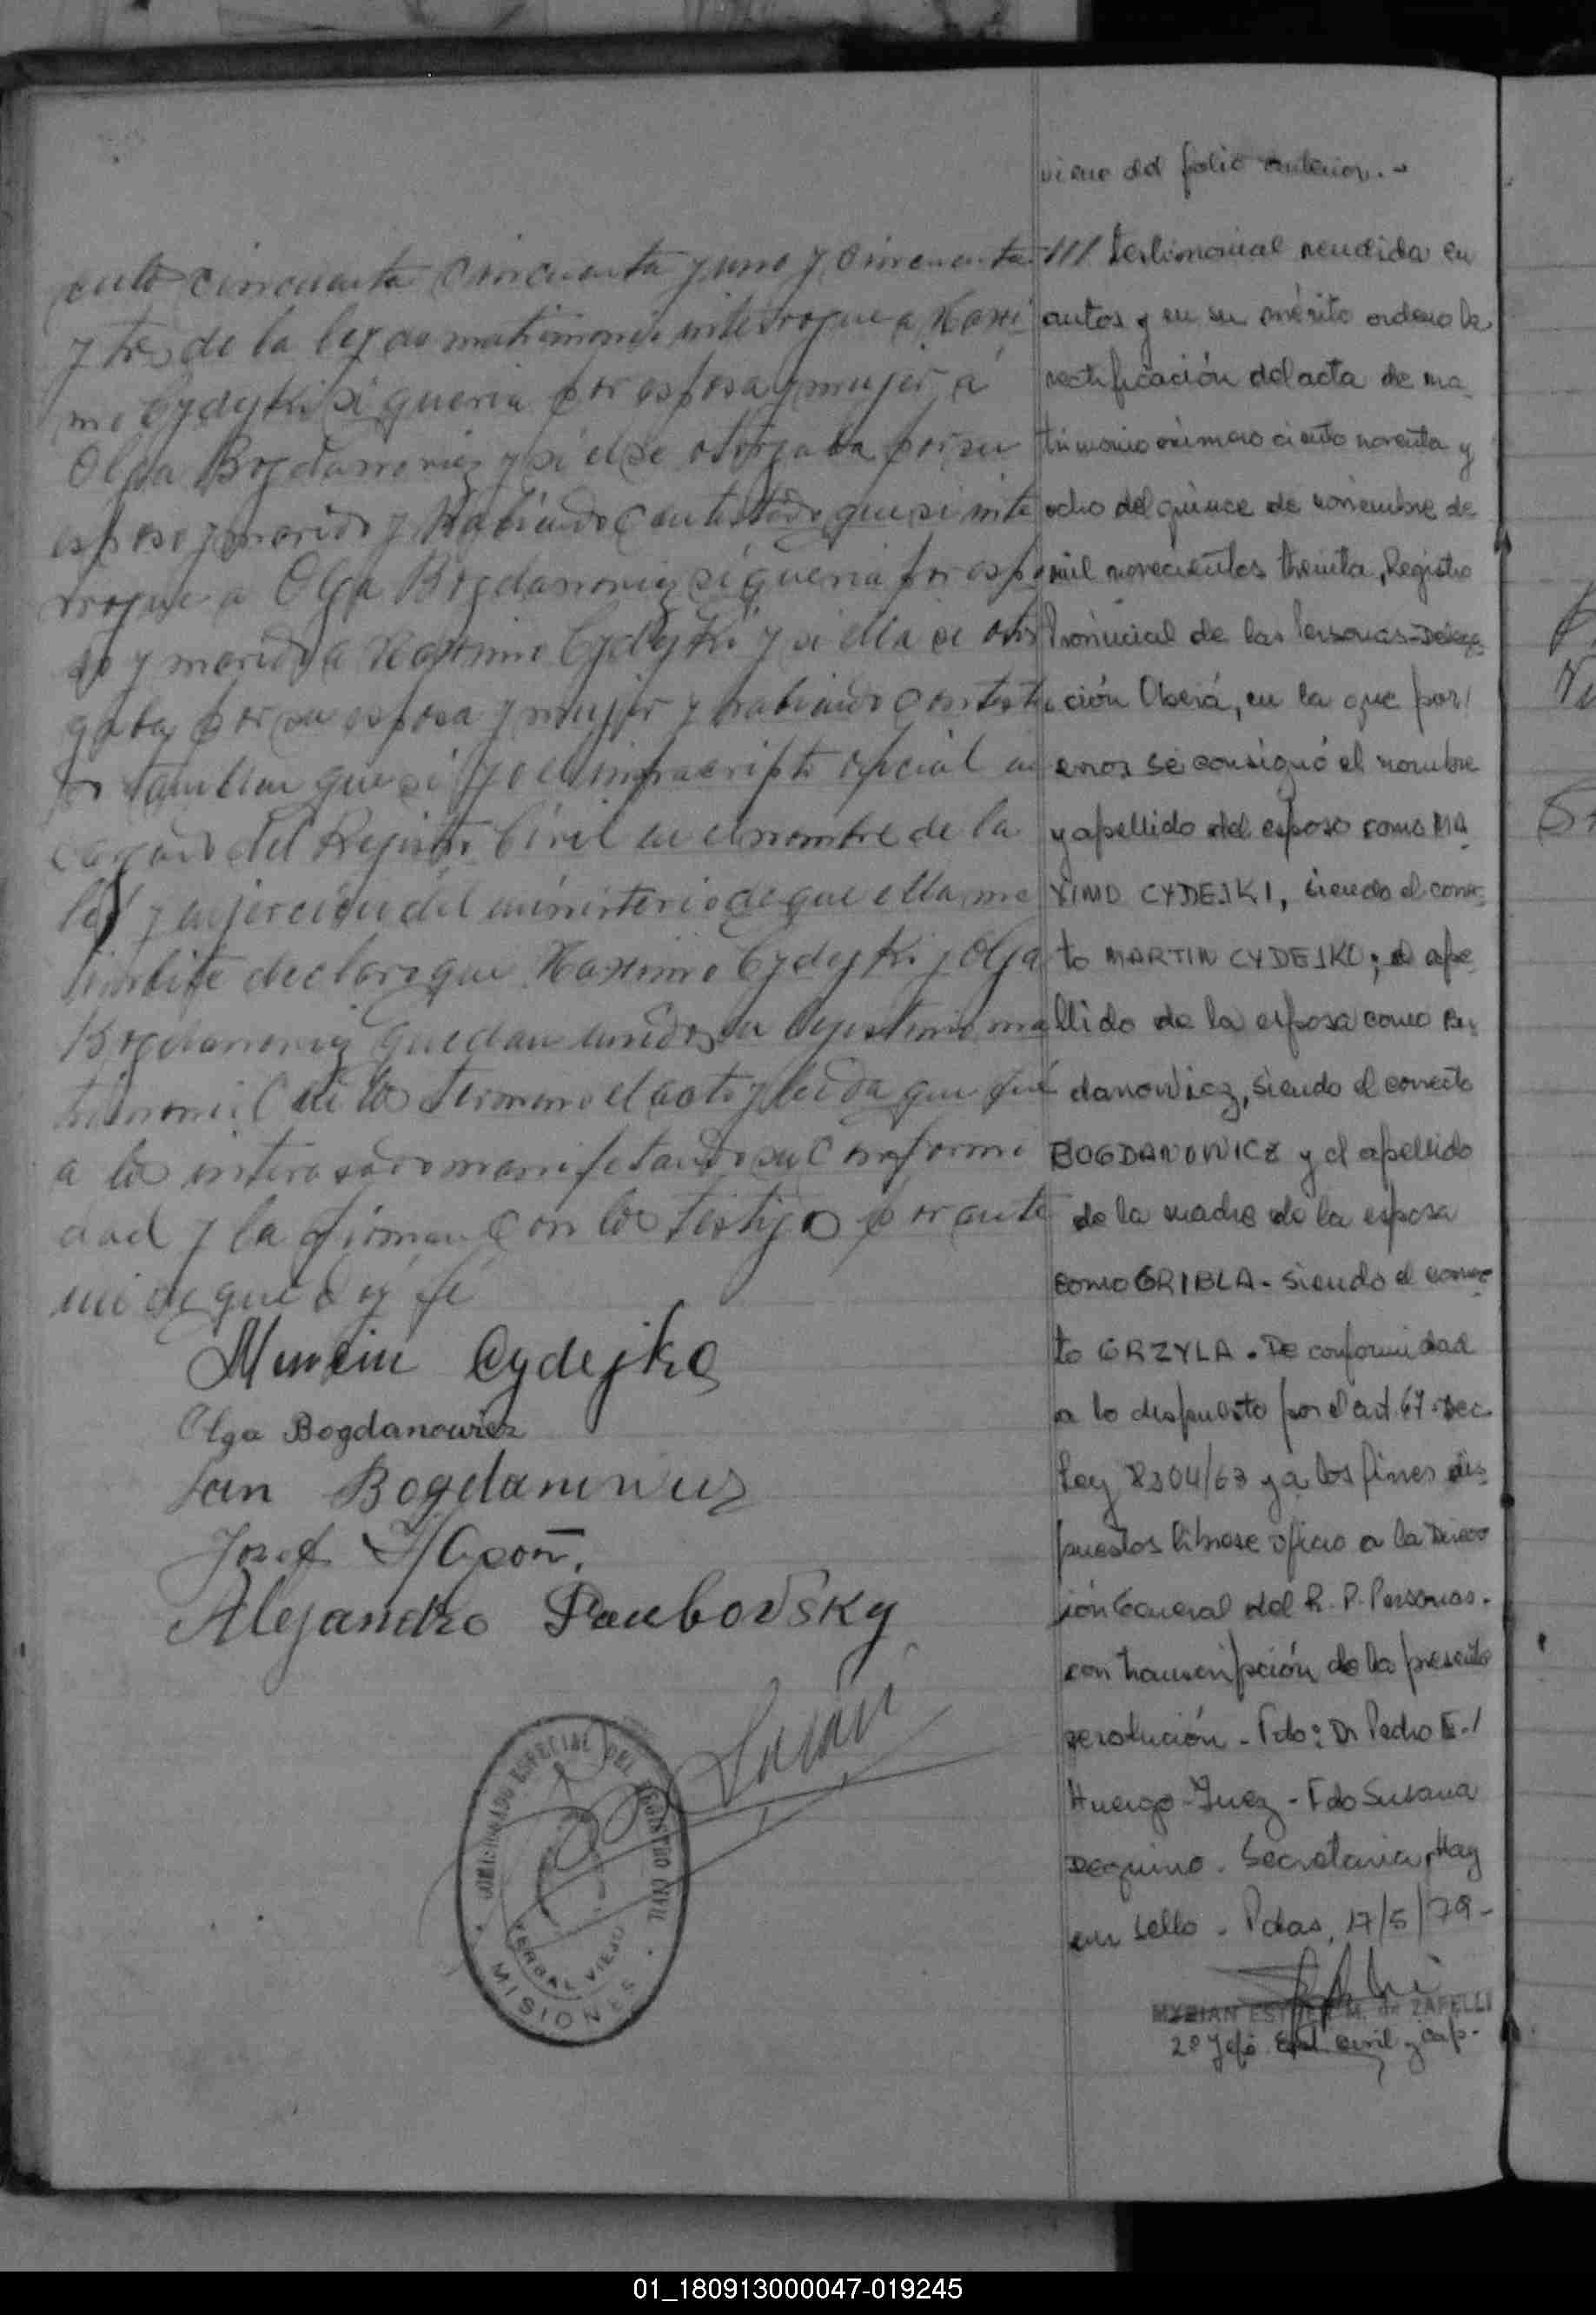 culo cincuenta cincuenta y uno y cincuenta
y tres de la ley de matrimonio interrogue a Maxi
mo Cydejki si queria por esposa y mujer á
Olga Bogdanoviez y si el se otorgaba por su
esposo y marido y habiendo contestado que si inte
rrogue a Olga Bogdanoviez si queria por espo
so y marido a Maximo Cydejki y si ella se otor
gaba por su esposa y mujer y habiendo contesta
do tambien que si yo el infrascripto oficial en
cargado del Registro Civil en el nombre de la
ley y en jercicio del ministerio de que ella me
imbite declaro que Maximo Cydejki y Olga
Bogdanoviez quedan unidos en lejitimo ma
trimonio Con lo termino el acto y leida que fué
a los interesado manifetando su Conformi
dad y la firman con los testigo por ante
mi de que doy fé
Marcin Cydejko
Olga Bogdanowicz
Jan Bogdanowicz
Jozef
Alejandro Paubovsky
COMISARIADO ESPECIAL DEL REGISTRO CIVIL
YERBAL VIEJO
MISIONES
viene del folio anterior.-
/// testimonial rendida en
autos y en su mérito ordeno la
rectificación del acta de ma-
trimonio número ciento noventa y
ocho del quince de noviembre de
mil novecientos treinta, Registro
Provincial de las Personas-Delega-
ción Oberá, en la que por/
error se consignó el nombre
y apellido del esposo como MA-
XIMO CYDEJKI, siendo el correc-
to MARTIN CYDEJKO; el ape-
llido de la esposa como Bo-
danowicz, siendo el correcto
BOGDANOWICZ y el apellido
de la madre de la esposa
como GRIBLA- siendo el correc-
to GRZYLA. De conformidad
a lo dispuesto por el art. 67 Dec
Ley 8204/63 y a los fines dis-
puestos líbrese oficio a la Direcc
ión General del R. P. Personas.
con transcripción de la presente
resolución - Fdo: Dr Pedro E./
Huergo - Juez - Fdo Susana
Dequino. Secretaria, Hay
un sello - Pdas, 17/5/79-
MYRIAN ESTHER M. de ZAFELLI
2º Jefe Est. Civil y Cap.
01_180913000047-019245